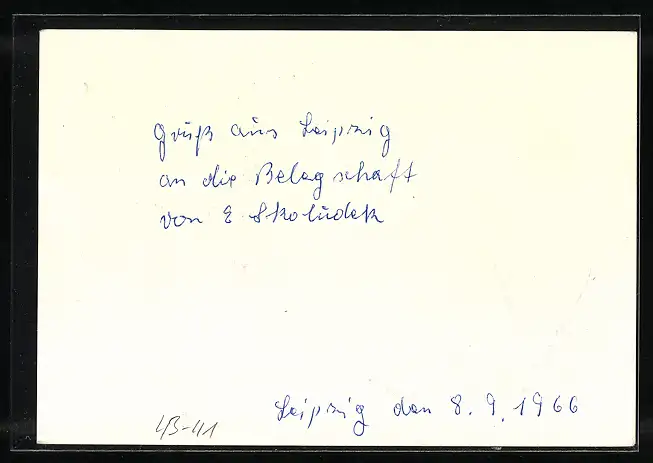 Gruß aus Leipzig
an die Belegschaft
von E Skoludek
Leipzig den 8.9.1966
43-41